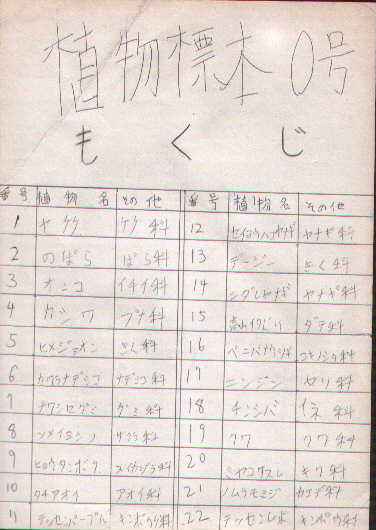 植物標本 0号
もくじ
番号 植物名 その他
1 ケ科
2 のばら ばら科
3 オンコ イチイ科
4 ブナ科
5 ヒメジョオン きく科
6 カワラナデシコ ナデシコ科
7 ナワシログミ グミ科
8 ソメイヨシノ サクラ科
9 ヒョウタンボク スイカズラ科
10 タチアオイ アオイ科
11 テッセンパープル キンポウゲ科
番号 植物名 その他
12 ヤナギ科
13 デージー きく科
14 シダレヤナギ ヤナギ科
15 科
16 ベニバナ 科
17 ニンジン セリ科
18 チンシバ イネ科
19 クワ クワ科
20 ミヤコワスレ キク科
21 ノムラモミジ カエデ科
22 テッセン キンポウゲ科